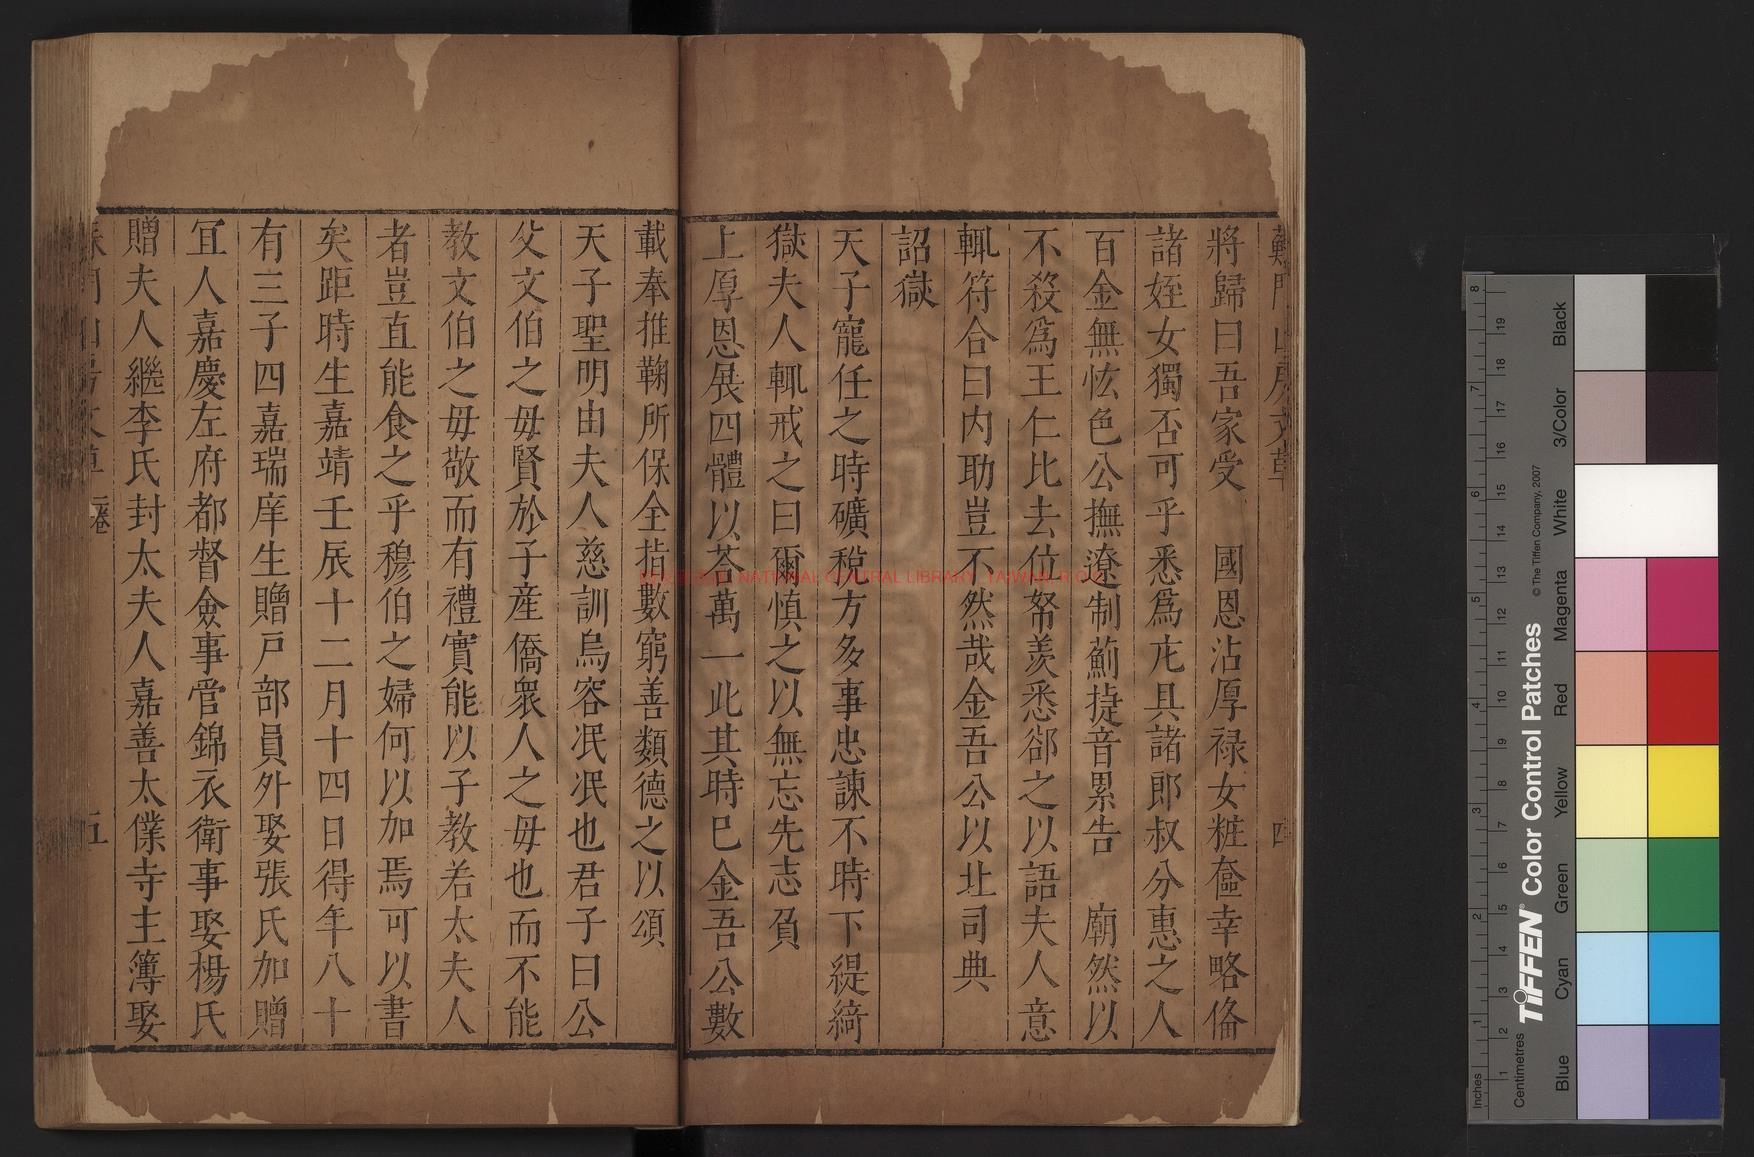 將歸曰吾家受　國恩沾厚祿女粧奩幸略俻
諸姪女獨否可乎悉爲庀具諸郎叔分惠之人
百金無怰色公撫遼制薊㨗音累告　廟然以
不殺爲王仁比去位帑羨悉郤之以語夫人意
輒符合曰内助豈不然哉金吾公以北司典
詔獄
天子寵任之時礦稅方多事忠諫不時下緹綺
獄夫人輒戒之曰爾慎之以無忘先志負
上厚恩展四體以荅萬一此其時巳金吾公數
載奉推鞠所保全指數窮善類德之以頌
天子聖明由夫人慈訓烏容冺冺也君子曰公
父文伯之毋賢於子産僑衆人之毋也而不能
教文伯之毋敬而有禮實能以子教若太夫人
者豈直能食之乎穆伯之婦何以加焉可以書
矣距時生嘉靖壬辰十二月十四日得年八十
有三子四嘉瑞庠生贈戸部員外娶張氏加贈
冝人嘉慶左府都督僉事管錦衣衛事娶楊氏
贈夫人繼李氏封太夫人嘉善太僕寺主簿娶
卷
五
NATIONAL CENTRAL LIBRARY, TAIWAN, R.O.C.
Inches
Centimetres
TIFFEN Color Control Patches
© The Tiffen Company, 2007
Blue
Cyan
Green
Yellow
Red
Magenta
White
3/Color
Black